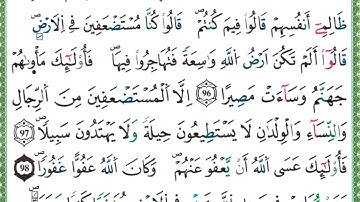 ظَالِمِےٓ أَنفُسِهِمْ قَالُوا۟ فِيمَ كُنتُمْ ۖ قَالُوا۟ كُنَّا مُسْتَضْعَفِينَ فِے اِ۬لْأَرْضِ ۖ
قَالُوٓا۟ أَلَمْ تَكُنْ أَرْضُ اُ۬للَّهِ وَٰسِعَةً فَتُهَاجِرُوا۟ فِيهَا ۖ فَأُو۟لَٰٓئِكَ مَأْوَىٰهُمْ
جَهَنَّمُ وَسَآءَتْ مَصِيرًا ۖ 96 إِلَّا اَ۬لْمُسْتَضْعَفِينَ مِنَ اَ۬لرِّجَالِ
وَالنِّسَآءِ وَالْوِلْدَٰنِ لَا يَسْتَطِيعُونَ حِيلَةً وَلَا يَهْتَدُونَ سَبِيلًا ۖ 97
فَأُو۟لَٰٓئِكَ عَسَى اَ۬للَّهُ أَنْ يَّعْفُوَ عَنْهُمْ ۖ وَكَانَ اَ۬للَّهُ عَفُوًّا غَفُورًا ۖ 98